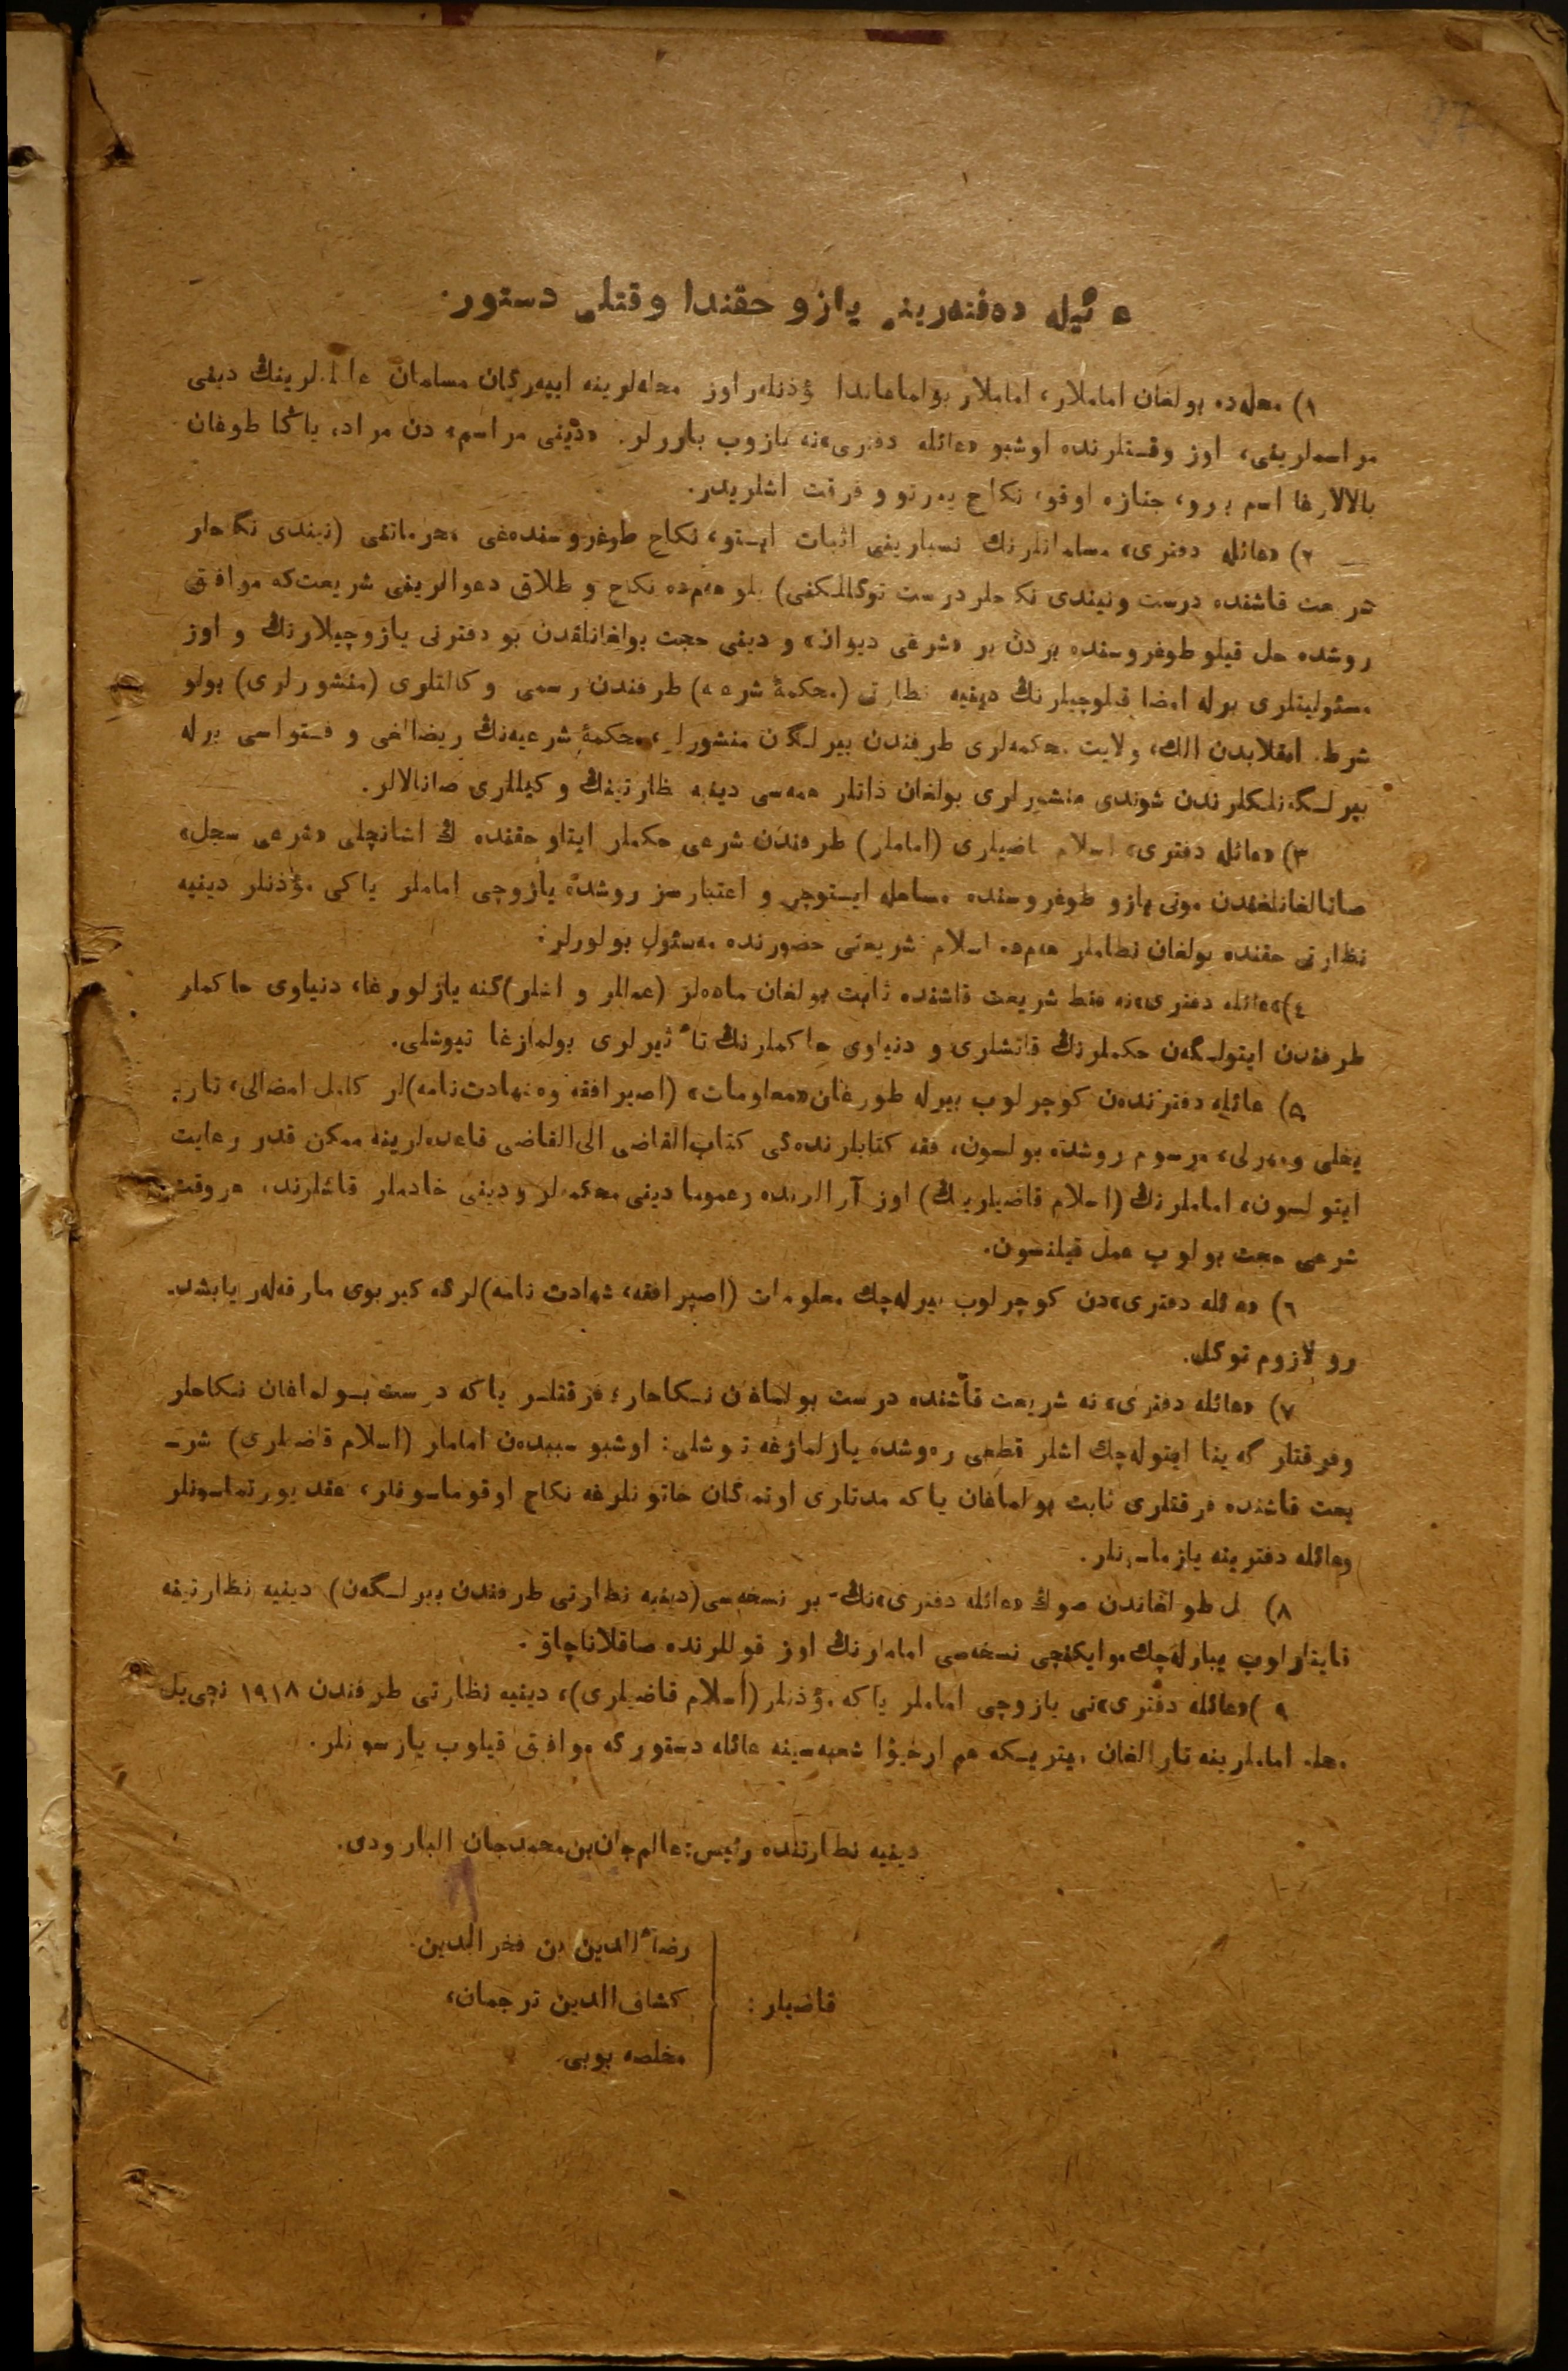 عائیله دەفتەرینی یازو حقندا وقتلی دستور.
١) محلەدە بولغان اماملار، اماملار بولماغاندا مؤذنلەر اوز محلەلرینە ایپەرگان مسلمان عائلەلرینڭ دینی
مراسملرینی، اوز وقتلرنده اوشبو «عائله دفتری»نه یازوب باررلر. «دینی مراسم» دن مراد، یاڭا طوغان
بالالارغا اسم بیرو، جنازه اوقو، نکاح یورتو و فرقت اشلریدر.
٢) «عائله دفتری» مسلمانلرنڭ نسبلرینی اثبات ایستو، نکاح طوغروسنده‌غی محرماتنی (نیندی نکاحلر
شریعت قاشنده درست و نیندی نکاحلر درست توگللکنی) بلو هم‌ده نکاح و طلاق دعوالرینی شریعت‌که موافق
روشده حل قیلو طوغروسنده بردن بر «شرعی دیوان» و دینی حجت بولغانلقدن بو دفترنی یازوچیلارنڭ و اوز
مسئولیتلری برله امضا قیلوچیلرنڭ دینیه نظارتی (محکمهٔ شرعیه) طرفندن رسمی وکالتلری (منشورلری) بولو
شرط. انقلابدن الك، ولایت محکمه‌لری طرفندن بیرلگان منشورلر، محکمهٔ شرعیه‌نڭ ریضالغی و فتواسی برله
بیرلگه‌نلکلرندن شوندی منشورلری بولغان ذاتلر همه‌سی دینیه نظارتینڭ وکیللری صانالالر.
٣) «عائله دفتری» اسلام قاضیلری (اماملر) طرفندن شرعی حکملر ایتلو حقنده ڭ اشانچلی «شرعی سجل»
صانالغانلغندن مونی یازو طوغروسنده مساهله ایستوچی و اعتبارسز روشده یازوچی اماملر یاکی مؤذنلر دینیه
نظارتی حقنده بولغان نظاملر هم‌ده اسلام شریعتی حضورنده مه‌سئول بولورلر.
٤) «عائله دفتری»نه فقط شریعت قاشنده ثابت بولغان ماده‌لر (عمللر و اشلر)گنه یازلورغا، دنیاوی حاکملر
طرفندن ایتولگه‌ن حکملرنڭ قاتشلری و دنیاوی حاکملرنڭ تأثیرلری بولمازغا تیوشلی.
٥) عائله دفترنده‌ن کوچرلوب بیرله طورغان «معلومات» (اصپرافقه و شهادت‌نامه)لر کامل امضالی، تاریـ
یخلی و مهرلی، مرسوم روشده بولسون، فقه کتابلرنده‌گی کتاب‌القاضی الی‌القاضی قاعده‌لرینه ممکن قدر رعایت
ایتولسون، اماملرنڭ (اسلام قاضیلرینڭ) اوز آرالرنده و عموما دینی محکمه‌لر و دینی خادملر قاشلرنده هروقت
شرعی حجت بولوب عمل قیلنسون.
٦) «عائله دفتری»دن کوچرلوب بیرله‌چك معلومات (اصپرافقه، شهادت نامه)لرگه کیربوی مارقه‌لەر یابشدـ
رو لازوم توگل.
٧) «عائله دفتری» نه شریعت قاشنده درست بولماغان نکاحلر، فرقتلر یاکه درست بولماغان نکاحلر
و فرقتلر گه بنا ایتوله‌چك اشلر قطعی ره‌وشده یازلمازغه تیوشلی: اوشبو سببده‌ن اماملر (اسلام قاضیلری) شرـ
یعت قاشنده فرقتلری ثابت بولماغان یاکه مدتلری اوتمه‌گان خاتونلرغه نکاح اوقوماسونلر، عقد یورتماسونلر
و عائله دفترینه یازماسونلر.
٨) یل طولغاندن صوڭ «عائله دفتری»نڭ بر نسخه‌سی (دینیه نظارتی طرفندن بیرلگه‌ن) دینیه نظارتینه
قایتارلوب یبارله‌چك، و ایکنچی نسخه‌سی اماملرنڭ اوز قوللرنده صاقلاناچاق.
٩) «عائله دفتری»نی یازوچی اماملر یاکه مؤذنلر (اسلام قاضیلری)، دینیه نظارتی طرفندن ١٩١٨ نچی یل
محله اماملرینه تارالغان میتریکه هم ارخیوا شعبه‌سینه عائله دستورگه موافق قیلوب یازسونلر.
دینیه نظارتنده رئیس: عالم‌جان بن محمدجان البارودی.
قاضیلر:
رضاءالدین بن فخرالدین.
کشاف‌الدین ترجمان،
مخلصه بوبی.